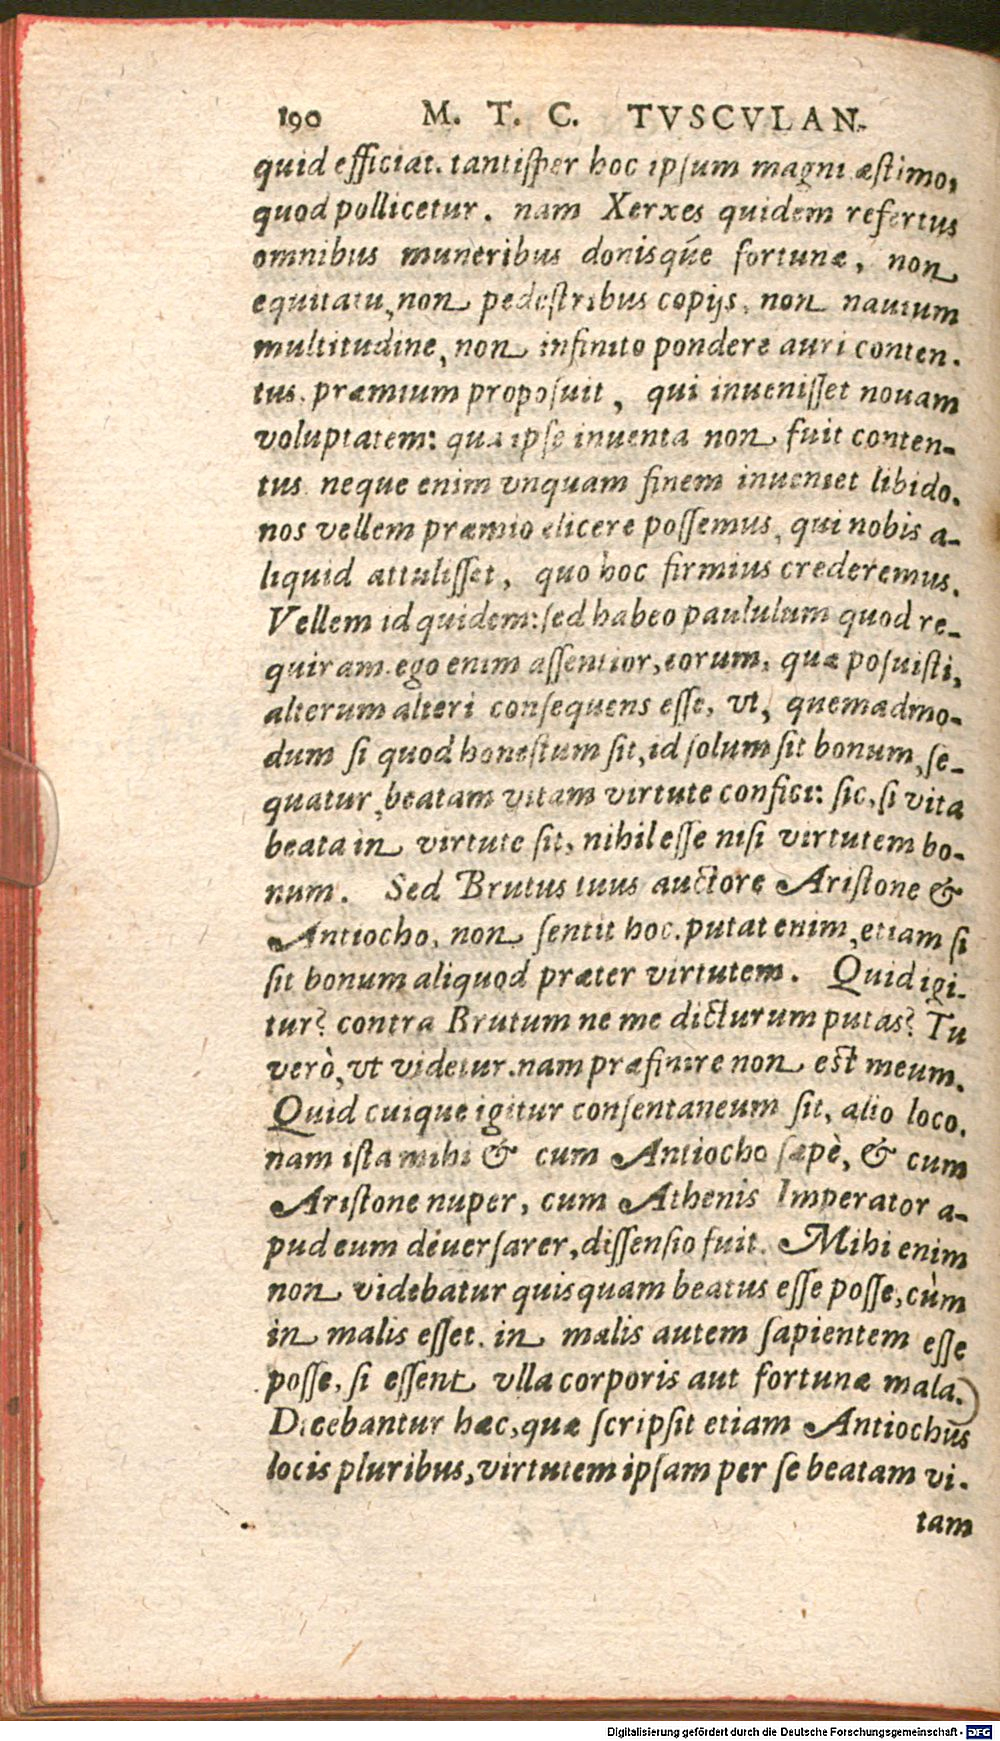 190 M. T. C. TVSCVLAN.
quid efficiat. tantisper hoc ipsum magni æstimo,
quod pollicetur. nam Xerxes quidem refertus
omnibus muneribus donisq́ue fortunæ, non
equitatu, non pedestribus copijs, non nauium
multitudine, non infinito pondere auri conten-
tus. præmium proposuit, qui inuenisset nouam
voluptatem: qua ipse inuenta non fuit conten-
tus neque enim vnquam finem inueniet libido.
nos vellem præmio elicere possemus, qui nobis a-
liquid attulisset, quo hoc firmius crederemus.
Vellem id quidem: sed habeo paululum quod re-
quiram. ego enim assentior, eorum, quæ posuisti,
alterum alteri consequens esse, vt, quemadmo-
dum si quod honestum sit, id solum sit bonum, se-
quatur, beatam vitam virtute confici: sic, si vita
beata in virtute sit, nihil esse nisi virtutem bo-
num. Sed Brutus tuus auctore Aristone &
Antiocho, non sentit hoc. putat enim, etiam si
sit bonum aliquod præter virtutem. Quid igi-
tur? contra Brutum ne me dicturum putas? Tu
verò, vt videtur. nam præfinire non est meum.
Quid cuique igitur consentaneum sit, alio loco.
nam ista mihi & cum Antiocho sæpè, & cum
Aristone nuper, cum Athenis Imperator a-
pud eum deuersarer, dissensio fuit. Mihi enim
non videbatur quisquam beatus esse posse, cùm
in malis esset. in malis autem sapientem esse
posse, si essent vlla corporis aut fortunæ mala.
Dicebantur hæc, quæ scripsit etiam Antiochus
locis pluribus, virtutem ipsam per se beatam vi-
tam
Digitalisierung gefördert durch die Deutsche Forschungsgemeinschaft - DFG